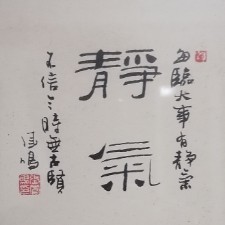 每臨大事有靜氣
靜氣
不信今時無古賢